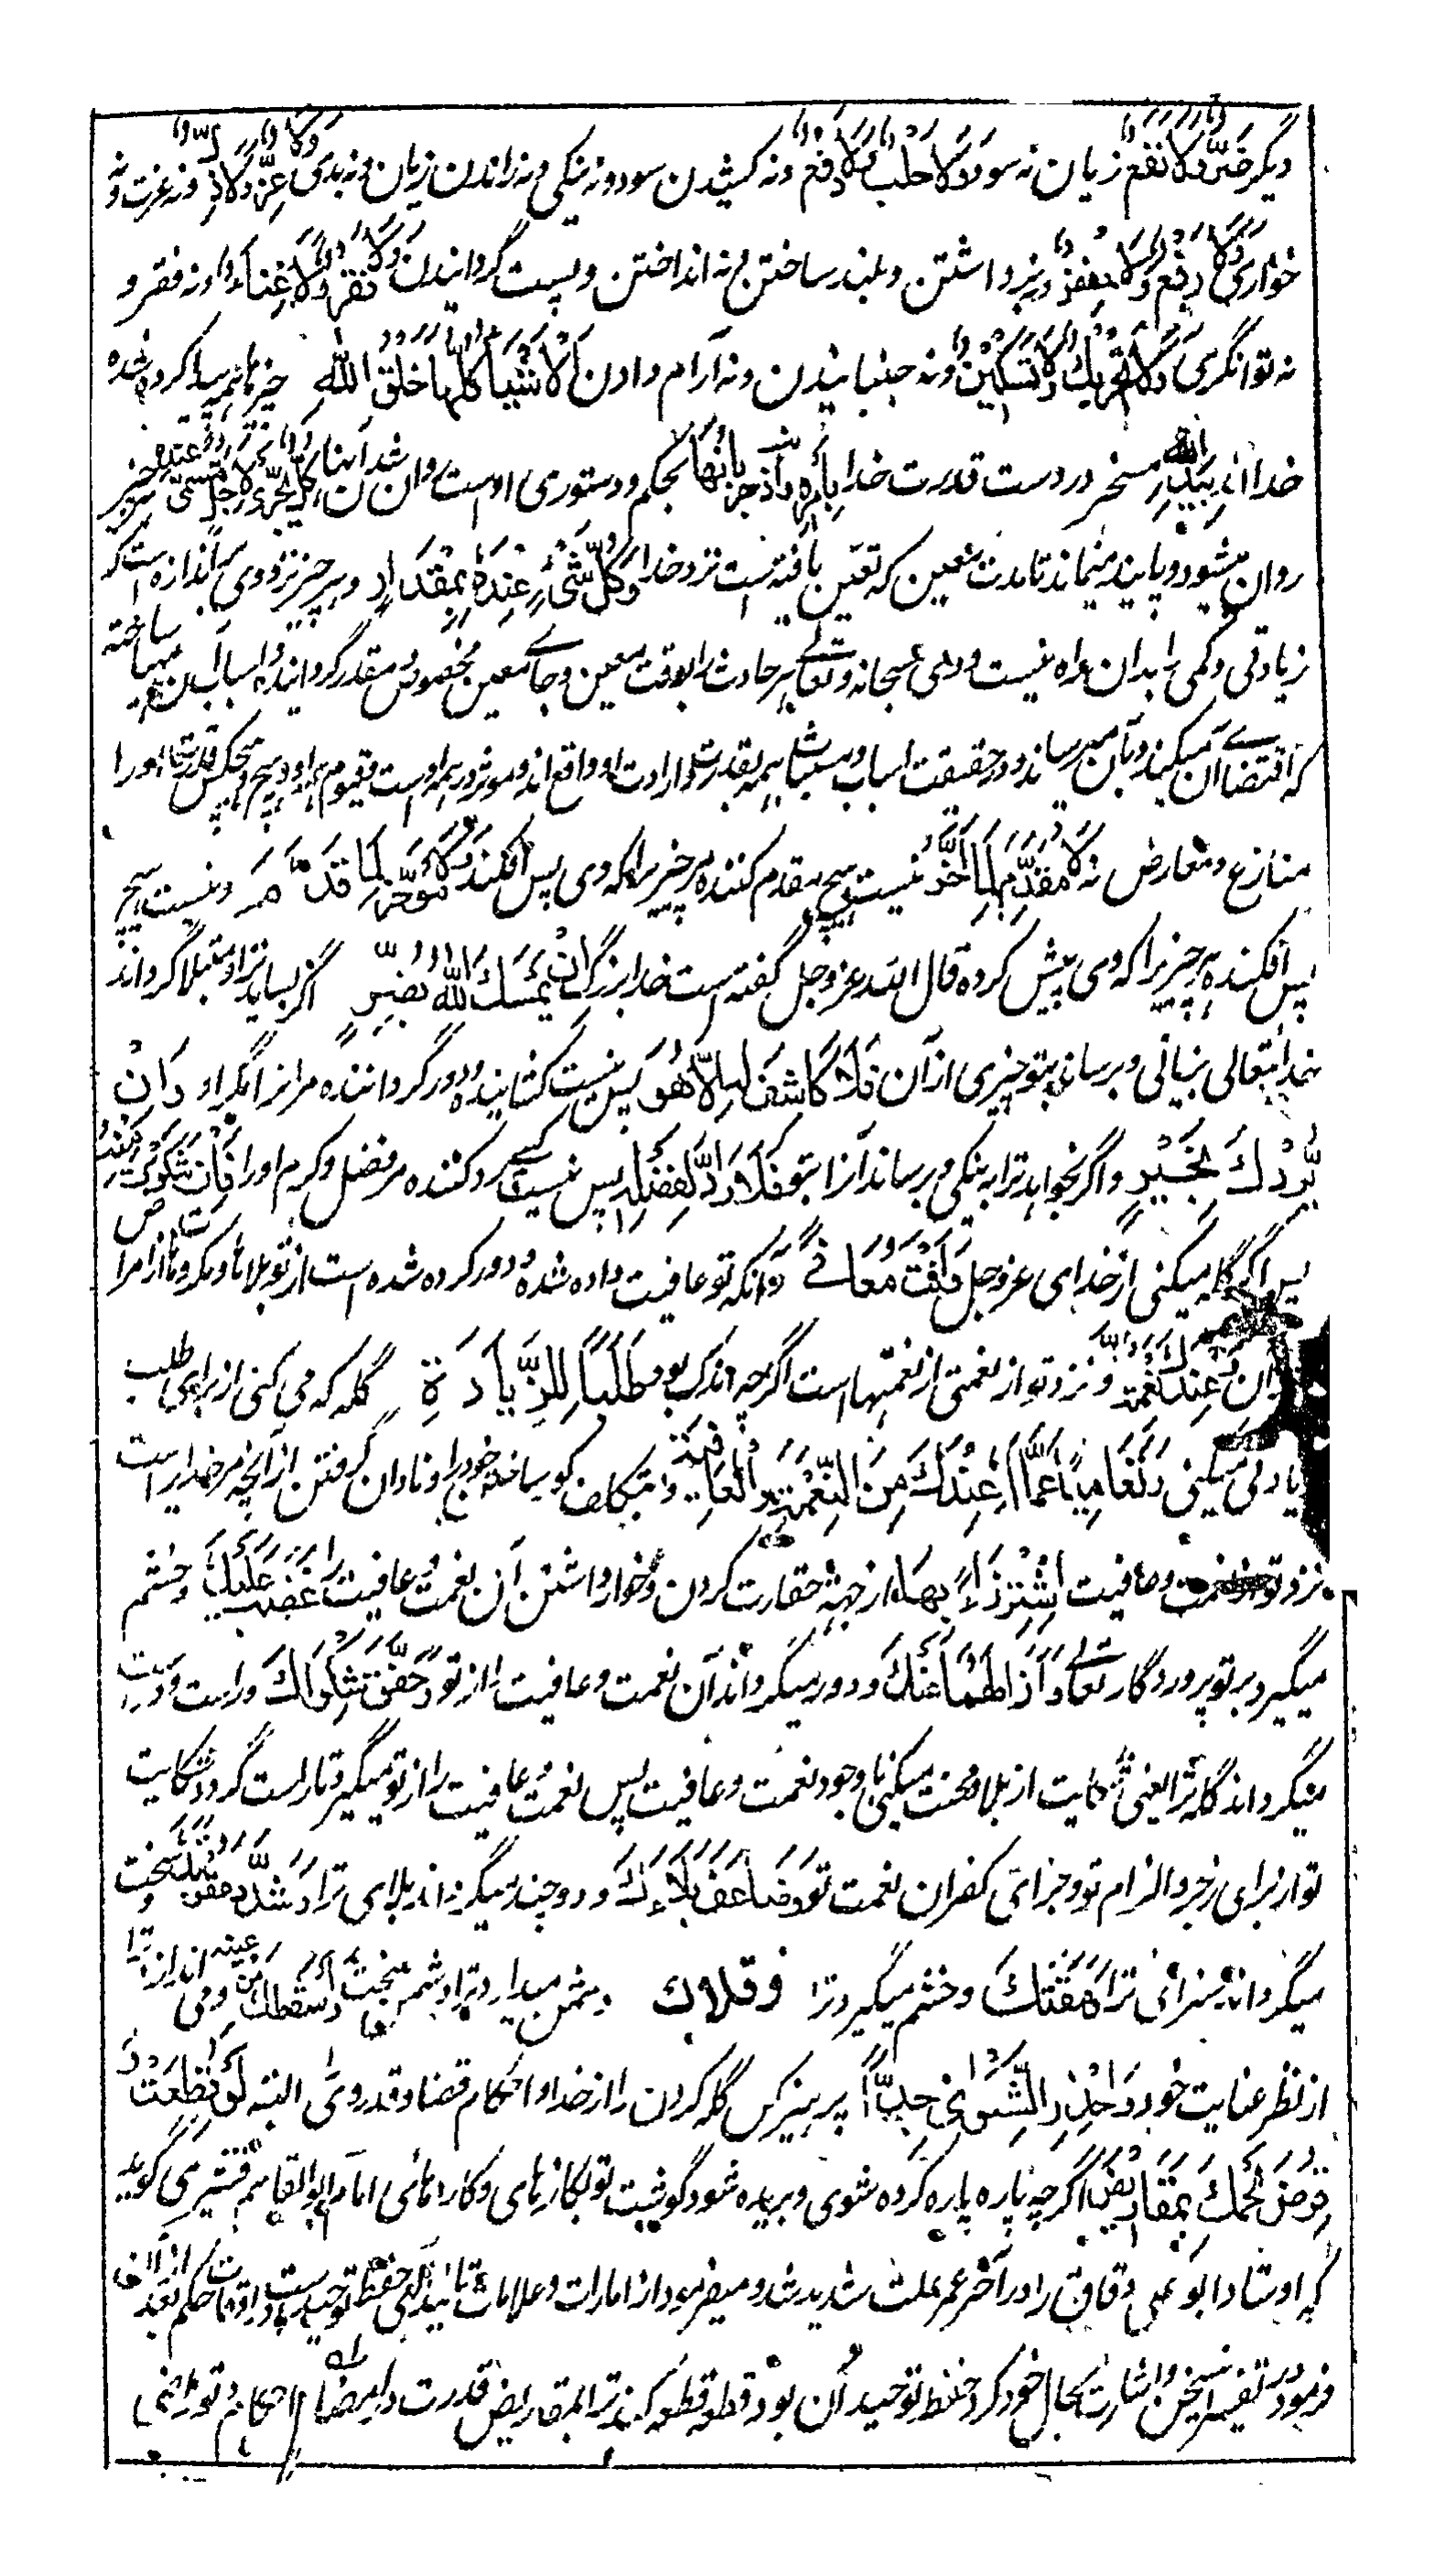 دیگر ضَرٌّ وَلَا نَفْعٌ زیان نه سود وَلَا جَلْبٌ وَلَا دَفْعٌ ونه کشیدن سود ونه نیکی ونه راندن زیان ونه بدی وَلَا عِزٌّ وَلَا ذُلٌّ ونه عزت ونه
خواری وَلَا رَفْعٌ وَلَا خَفْضٌ ونه برداشتن وبلند ساختن ونه انداختن وپست گردانیدن وَلَا فَقْرٌ وَلَا غِنَاءٌ ونه فقر و
نه توانگری وَلَا تَحْرِیْكٌ وَلَا تَسْكِیْنٌ ونه جنبانیدن ونه آرام دادن اَلْاَشْیَاءُ كُلُّهَا خَلْقُ اللّٰهِ چیزها همه پیدا کرده شده
خدااند بِیَدِ اللّٰهِ مسخر در دست قدرت خدا بِاَمْرِهٖ وَاِذْنِهٖ جَرْیَانُهَا بحکم ودستوری اوست روان شدن آنها كُلٌّ یَّجْرِیْ لِاَجَلٍ مُّسَمًّی عِنْدَهٗ هر چیز
روان میشود وپاینده میماند تا مدت معین که تعین یافته است نزد خدا وَكُلُّ شَیْءٍ عِنْدَهٗ بِمِقْدَارٍ وهر چیز نزد وی باندازه است که
زیادتی وکمی را بدان راه نیست ووی سبحانه وتعالے هر حادث را بوقت معین وجاے معین مخصوص مقدر گردانیده واسباب آن مهیا ساخته
که اقتضاے آن میکند وبآن میرساند ودر حقیقت اسباب ومسببات همه بقدرت وارادت او واقع اند وموثر در همه اوست وقیوم همه او وهیچ وهیچکس قدرت اورا
منازع ومعارض نه لَا مُقَدِّمَ لِمَا اَخَّرَ نیست هیچ مقدم کننده مر چیزیرا که وی پس افکنده وَلَا مُؤَخِّرَ لِمَا قَدَّمَ ونیست هیچ
پس افکنده مر چیزیرا که وی پیش کرده قال الله عز وجل گفته است خدا بزرگ اِنْ یَّمْسَسْكَ اللّٰهُ بِضُرٍّ اگر بساید ترا ومبتلا گرداند
خداتعالی بزیانی وبرساند بتو چیزی از آن فَلَا كَاشِفَ لَهٗ اِلَّا هُوَ پس نیست کشاینده ودور گرداننده مر انرا مگر او وَاِنْ
یُّرِدْكَ بِخَیْرٍ واگر بخواهد ترا به نیکی وبرساند آنرا بتو فَلَا رَادَّ لِفَضْلِهٖ پس نیست کسے رد کننده مر فضل وکرم اورا فَاِنْ شَكَوْتَ
پس اگر گله میکنی از خدای عز وجل وَاَنْتَ مُعَافًے وآنکه تو عافیت داده شده ودور کرده شده است از تو بلاها ومکروهات
عِنْدَكَ نِعْمَةٌ ونزد تو از نعمتی از نعمتها است اگرچه اندک بود طَلَبًا لِلزِّیَادَةِ گله که می کنی از برای طلب
زیادتی میکنی وَتَعَامِیًا عَمَّا عِنْدَكَ مِنَ النِّعْمَةِ وَالْعَافِیَةِ وبتکلف کور ساختن خود را ونادان گرفتن از آنچه مر خدایراست
نزد تو از نعمت وعافیت اِزْدِرَاءً بِهَا از جهة حقارت کردن وخوار داشتن آن نعمت وعافیت را غَضِبَ عَلَیْكَ وخشم
میگیرد بر تو پروردگار تعالے وَاَزَالَهُمَا عَنْكَ ودور میگرداند آن نعمت وعافیت را از تو وَحَقَّقَ شَكْوَاكَ وراست
میگرداند گله ترا یعنی شکایت از بلا ومحنت میکنی با وجود نعمت وعافیت پس نعمت وعافیت را از تو میگیرد تا راست گردد شکایت
تو از برای زجر والزام تو وجزای کفران نعمت تو وَضَاعَفَ بَلَاءَكَ ودوچند میگرداند بلای ترا وَشَدَّدَ عُقُوْبَتَكَ وسخت
میگرداند سزای ترا وَمَقَتَكَ وخشم میگیرد ترا وَقَلَاكَ ودشمن میدارد ترا دشمن سخت وَاَسْقَطَكَ مِنْ عَیْنِهٖ ومی اندازد ترا
از نظر عنایت خود وَاحْذَرِ الشَّكْوٰی جِدًّا پرهیز کن گله کردن را از خدا واحکام قضا وقدر وی البته لَوْ قُطِعْتَ وَ
قُرِضَ لَحْمُكَ بِمَقَارِیْضَ اگرچه پاره پاره کرده شوی وبریده شود گوشت تو بگازهای وکاردهای امام ابوالقاسم قشیری گوید
که اوستاد ابو علی دقاق را در آخر عمر علت شدید شد ومیفرمود از امارات وعلامات تائید الهی حفظ توحید است در اوقات
فرمود در تفسیر این سخن واشارت بحال خود کرد حفظ توحید آن بود قطعه قطعه کنند ترا بمقاریض قدرت در امضای احکام وتو راضی